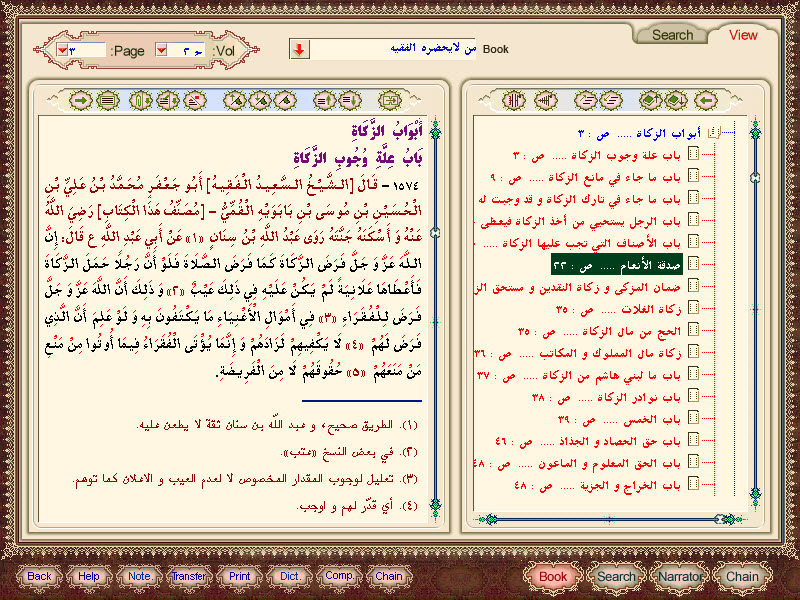 Search
View
Book
من لايحضره الفقيه
Vol:
ج ۲
Page:
۳
أَبْوَابُ الزَّكَاةِ
بَابُ عِلَّةِ وُجُوبِ الزَّكَاةِ
۱۵۷٤ - قَالَ [الشَّيْخُ السَّعِيدُ الْفَقِيهُ] أَبُو جَعْفَرٍ مُحَمَّدُ بْنُ عَلِيِّ بْنِ
الْحُسَيْنِ بْنِ مُوسَى بْنِ بَابَوَيْهِ الْقُمِّيُّ - [مُصَنِّفُ هَذَا الْكِتَابِ] رَضِيَ اللَّهُ
عَنْهُ وَ أَسْكَنَهُ جَنَّتَهُ رَوَى عَبْدُ اللَّهِ بْنُ سِنَانٍ «۱» عَنْ أَبِي عَبْدِ اللَّهِ ع قَالَ: إِنَّ
اللَّهَ عَزَّ وَ جَلَّ فَرَضَ الزَّكَاةَ كَمَا فَرَضَ الصَّلَاةَ فَلَوْ أَنَّ رَجُلًا حَمَلَ الزَّكَاةَ
فَأَعْطَاهَا عَلَانِيَةً لَمْ يَكُنْ عَلَيْهِ فِي ذَلِكَ عَيْبٌ «۲» وَ ذَلِكَ أَنَّ اللَّهَ عَزَّ وَ جَلَّ
فَرَضَ لِلْفُقَرَاءِ «۳» فِي أَمْوَالِ الْأَغْنِيَاءِ مَا يَكْتَفُونَ بِهِ وَ لَوْ عَلِمَ أَنَّ الَّذِي
فَرَضَ لَهُمْ «٤» لَا يَكْفِيهِمْ لَزَادَهُمْ وَ إِنَّمَا يُؤْتَى الْفُقَرَاءُ فِيمَا أُوتُوا مِنْ مَنْعِ
مَنْ مَنَعَهُمْ «۵» حُقُوقَهُمْ لَا مِنَ الْفَرِيضَةِ.
(۱). الطريق صحيح، و عبد اللّه بن سنان ثقة لا يطعن عليه.
(۲). في بعض النسخ «عتب».
(۳). تعليل لوجوب المقدار المخصوص لا لعدم العيب و الاعلان كما توهم.
(٤). أي قدّر لهم و اوجب.
أبواب الزكاة ..... ص : ۳
باب علة وجوب الزكاة ..... ص : ۳
باب ما جاء في مانع الزكاة ..... ص : ۹
باب ما جاء في تارك الزكاة و قد وجبت له
باب الرجل يستحيي من أخذ الزكاة فيعطى
باب الأصناف التي تجب عليها الزكاة .....
صدقة الأنعام ..... ص : ۲۲
ضمان المزكي و زكاة النقدين و مستحق الز
زكاة الغلات ..... ص : ۳۵
الحج من مال الزكاة ..... ص : ۳۵
زكاة مال المملوك و المكاتب ..... ص : ۳۶
باب ما لبني هاشم من الزكاة ..... ص : ۳۷
باب نوادر الزكاة ..... ص : ۳۸
باب الخمس ..... ص : ۳۹
باب حق الحصاد و الجذاذ ..... ص : ٤۶
باب الحق المعلوم و الماعون ..... ص : ٤۸
باب الخراج و الجزية ..... ص : ٤۸
Back
Help
Note.
Transfer
Print
Dict.
Comp.
Chain
Book
Search
Narrator
Chain